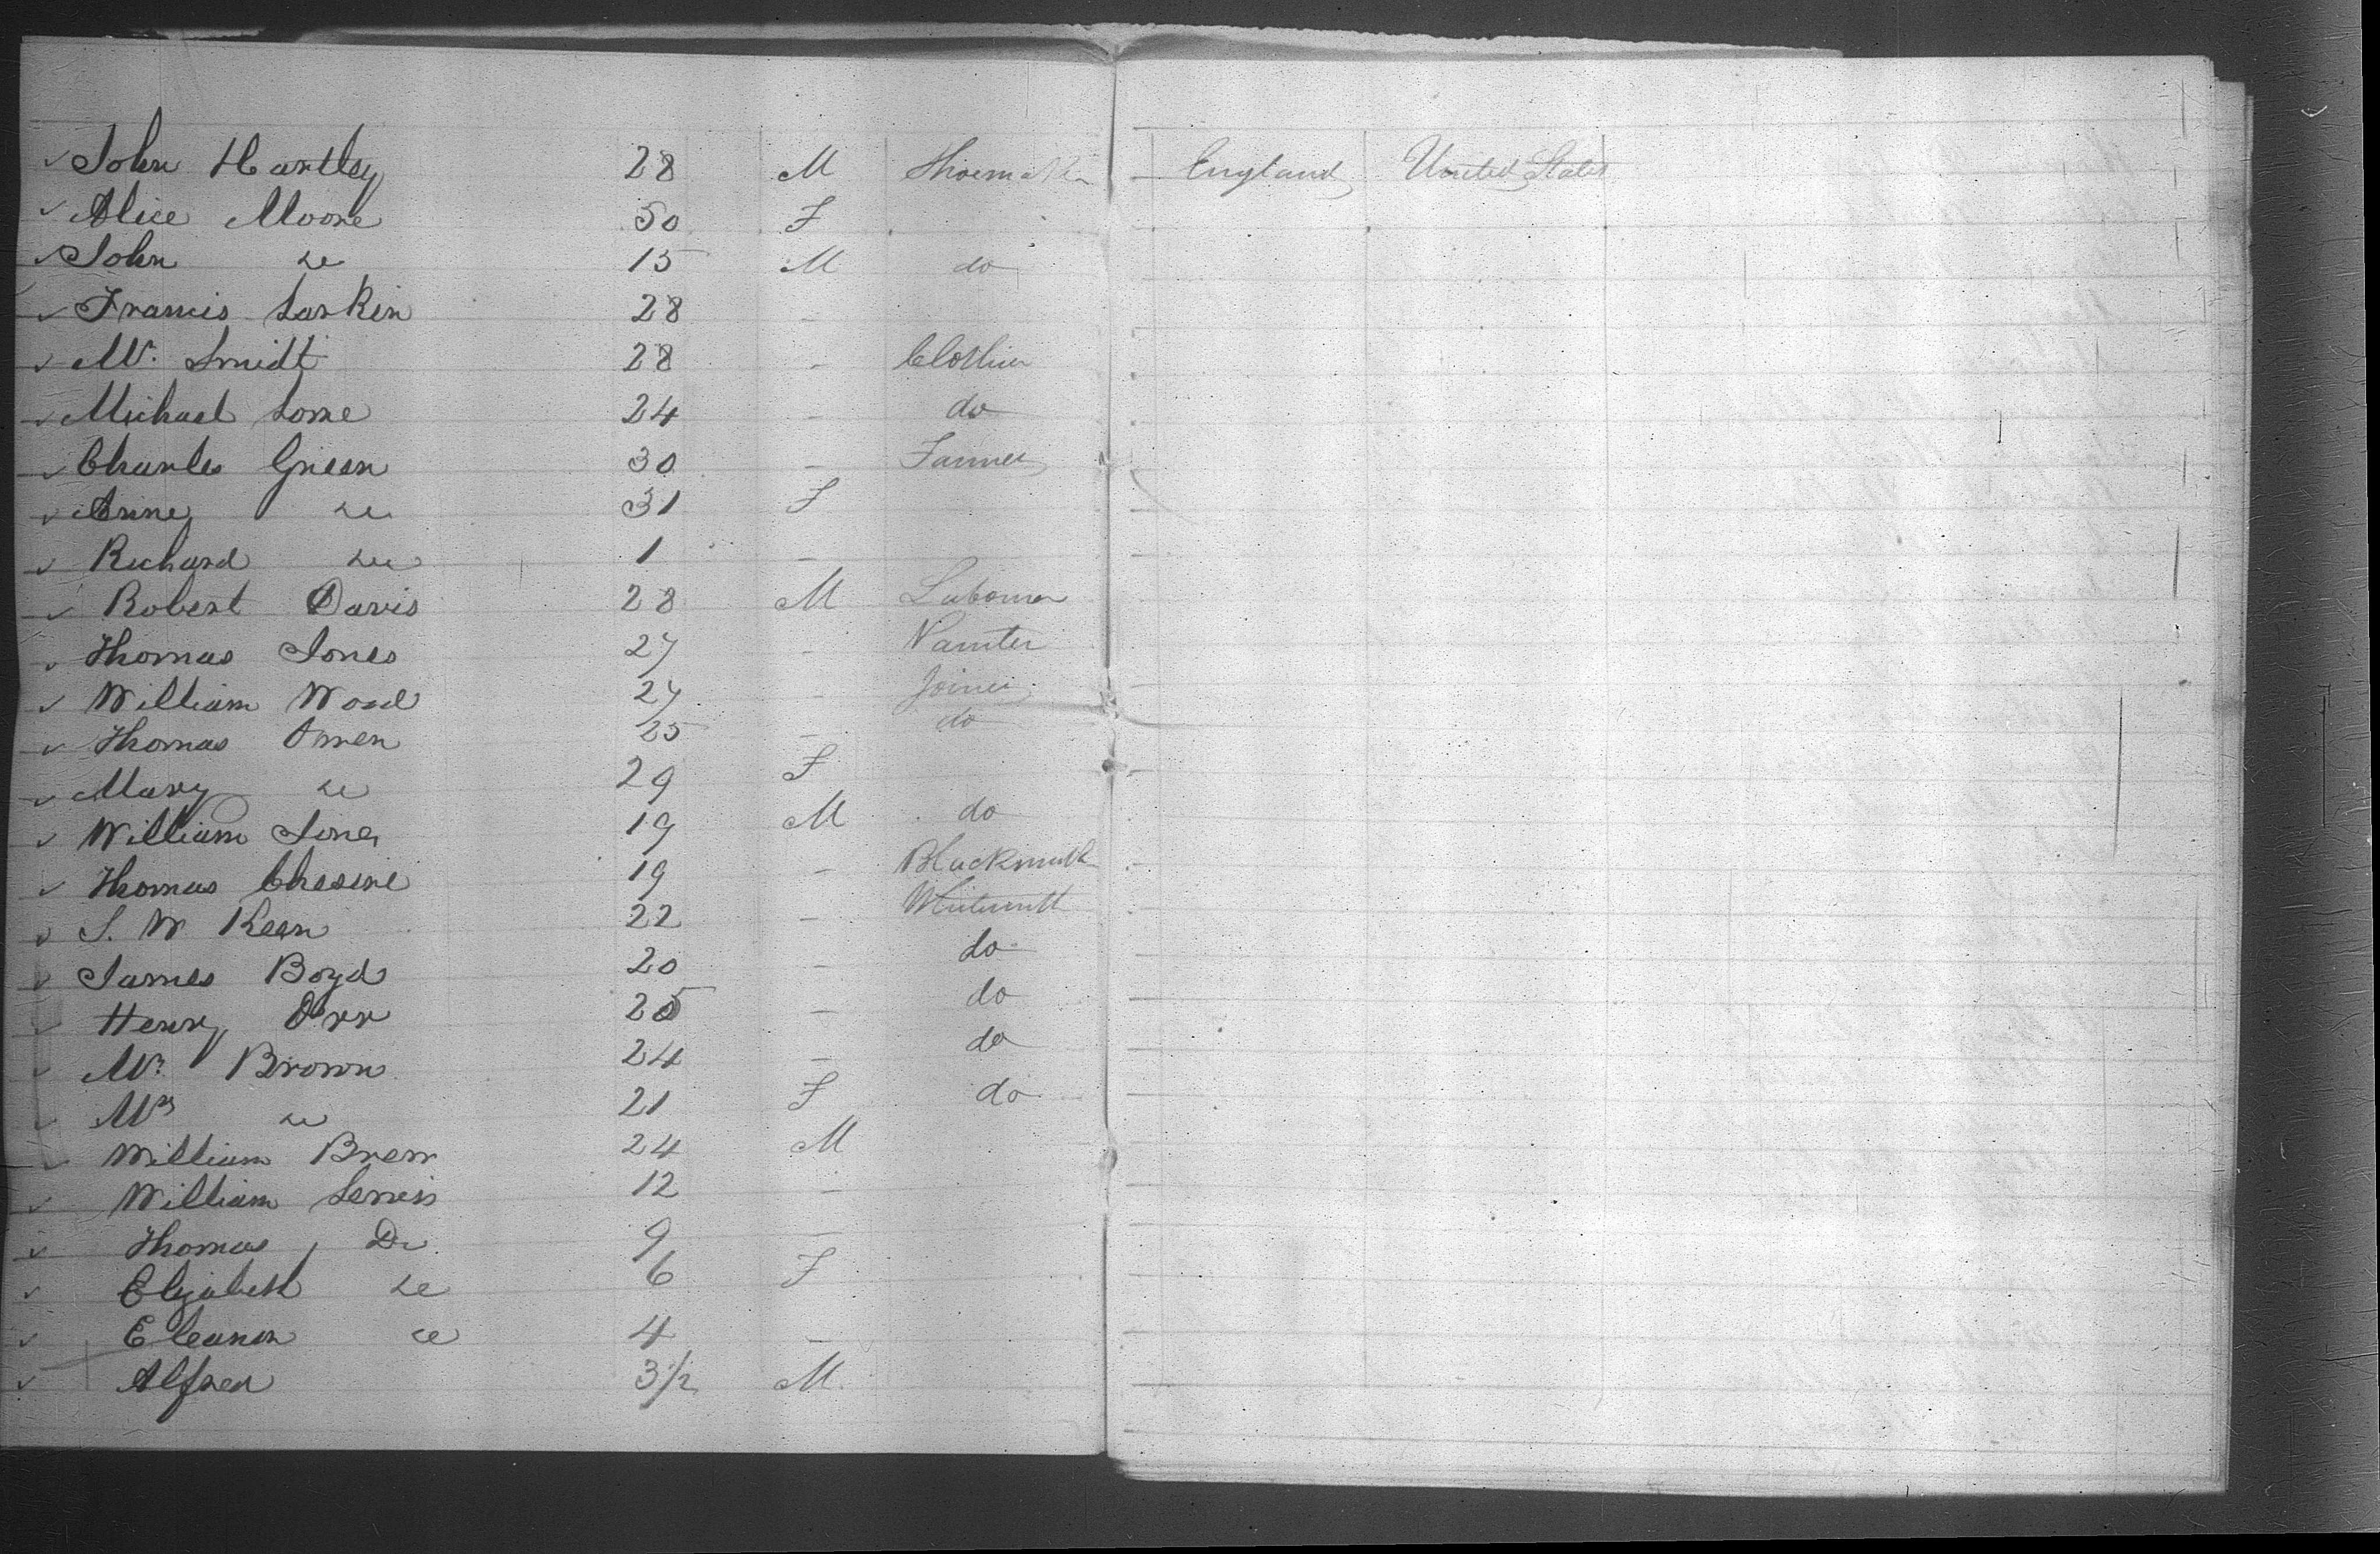 John Hartley 28 M Shoemaker England United States
Alice Moore 50 F
John do 15 M do
Francis Larkin 28 -
Mr. Smidt 28 - Clothier
Michael Lome 24 - do
Charles Green 30 - Farmer
Anne do 31 F
Richard do 1 -
Robert Davis 28 M Labourer
Thomas Jones 27 - Painter
William Wood 27 - Joiner
Thomas Owen 25 - do
Mary do 29 F
William Jones 19 M do
Thomas 19 - Blacksmith
J. W Keen 22 - Whitesmith
James Boyd 20 - do
Henry Orr 25 - do
Mr. Brown 24 - do
Mrs do 21 F do
William Brew 24 M
William Lewis 12 -
Thomas Do 9 -
Elizabeth do 6 F
Eleanor do 4 -
Alfred 3 1/2 M